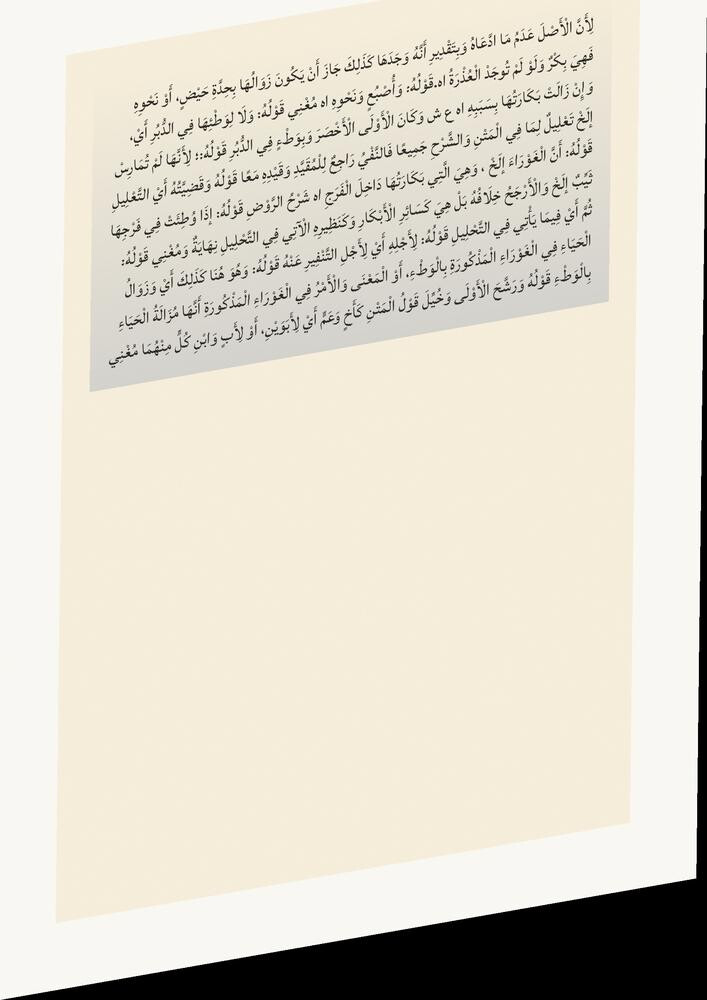 لِأَنَّ الْأَصْلَ عَدَمُ مَا ادَّعَاهُ وَبِتَقْدِيرِ أَنَّهُ وَجَدَهَا كَذَلِكَ جَازَ أَنْ يَكُونَ زَوَالُهَا بِحِدَّةِ حَيْضٍ، أَوْ نَحْوِهِ
فَهِيَ بِكْرٌ وَلَوْ لَمْ تُوجَدْ الْعُذْرَةُ اه.قَوْلُهُ: وَأُصْبُعٍ وَنَحْوِهِ اه مُغْنِي قَوْلُهُ: وَلَا لِوَطْئِهَا فِي الدُّبُرِ أَيْ،
وَإِنْ زَالَتْ بَكَارَتُهَا بِسَبَبِهِ اه ع ش وَكَانَ الْأَوْلَى الْأَخْصَرَ وَبِوَطْءٍ فِي الدُّبُرِ قَوْلُهُ:؛ لِأَنَّهَا لَمْ تُمَارِسْ
إلَخْ تَعْلِيلٌ لِمَا فِي الْمَتْنِ وَالشَّرْحِ جَمِيعًا فَالنَّفْيُ رَاجِعٌ لِلْمُقَيَّدِ وَقَيْدِهِ مَعًا قَوْلُهُ وَقَضِيَّتُهُ أَيْ التَّعْلِيلِ
قَوْلُهُ: أَنَّ الْغَوْرَاءَ إلَخْ ، وَهِيَ الَّتِي بَكَارَتُهَا دَاخِلَ الْفَرْجِ اه شَرْحُ الرَّوْضِ قَوْلُهُ: إذَا وُطِئَتْ فِي فَرْجِهَا
ثَيِّبٌ إلَخْ وَالْأَرْجَحُ خِلَافُهُ بَلْ هِيَ كَسَائِرِ الْأَبْكَارِ وَكَنَظِيرِهِ الْآتِي فِي التَّحْلِيلِ نِهَايَةٌ وَمُغْنِي قَوْلُهُ:
ثُمَّ أَيْ فِيمَا يَأْتِي فِي التَّحْلِيلِ قَوْلُهُ: لِأَجْلِهِ أَيْ لِأَجْلِ التَّنْفِيرِ عَنْهُ قَوْلُهُ: وَهُوَ هُنَا كَذَلِكَ أَيْ وَزَوَالُ
الْحَيَاءِ فِي الْغَوْرَاءِ الْمَذْكُورَةِ بِالْوَطْءِ، أَوْ الْمَعْنَى وَالْأَمْرُ فِي الْغَوْرَاءِ الْمَذْكُورَةِ أَنَّهَا مُزَالَةُ الْحَيَاءِ
بِالْوَطْءِ قَوْلُهُ وَرَشَّحَ الْأَوْلَى وَخُيِّلَ قَوْلُ الْمَتْنِ كَأَخٍ وَعَمٍّ أَيْ لِأَبَوَيْنِ، أَوْ لِأَبٍ وَابْنِ كُلٍّ مِنْهُمَا مُغْنِي